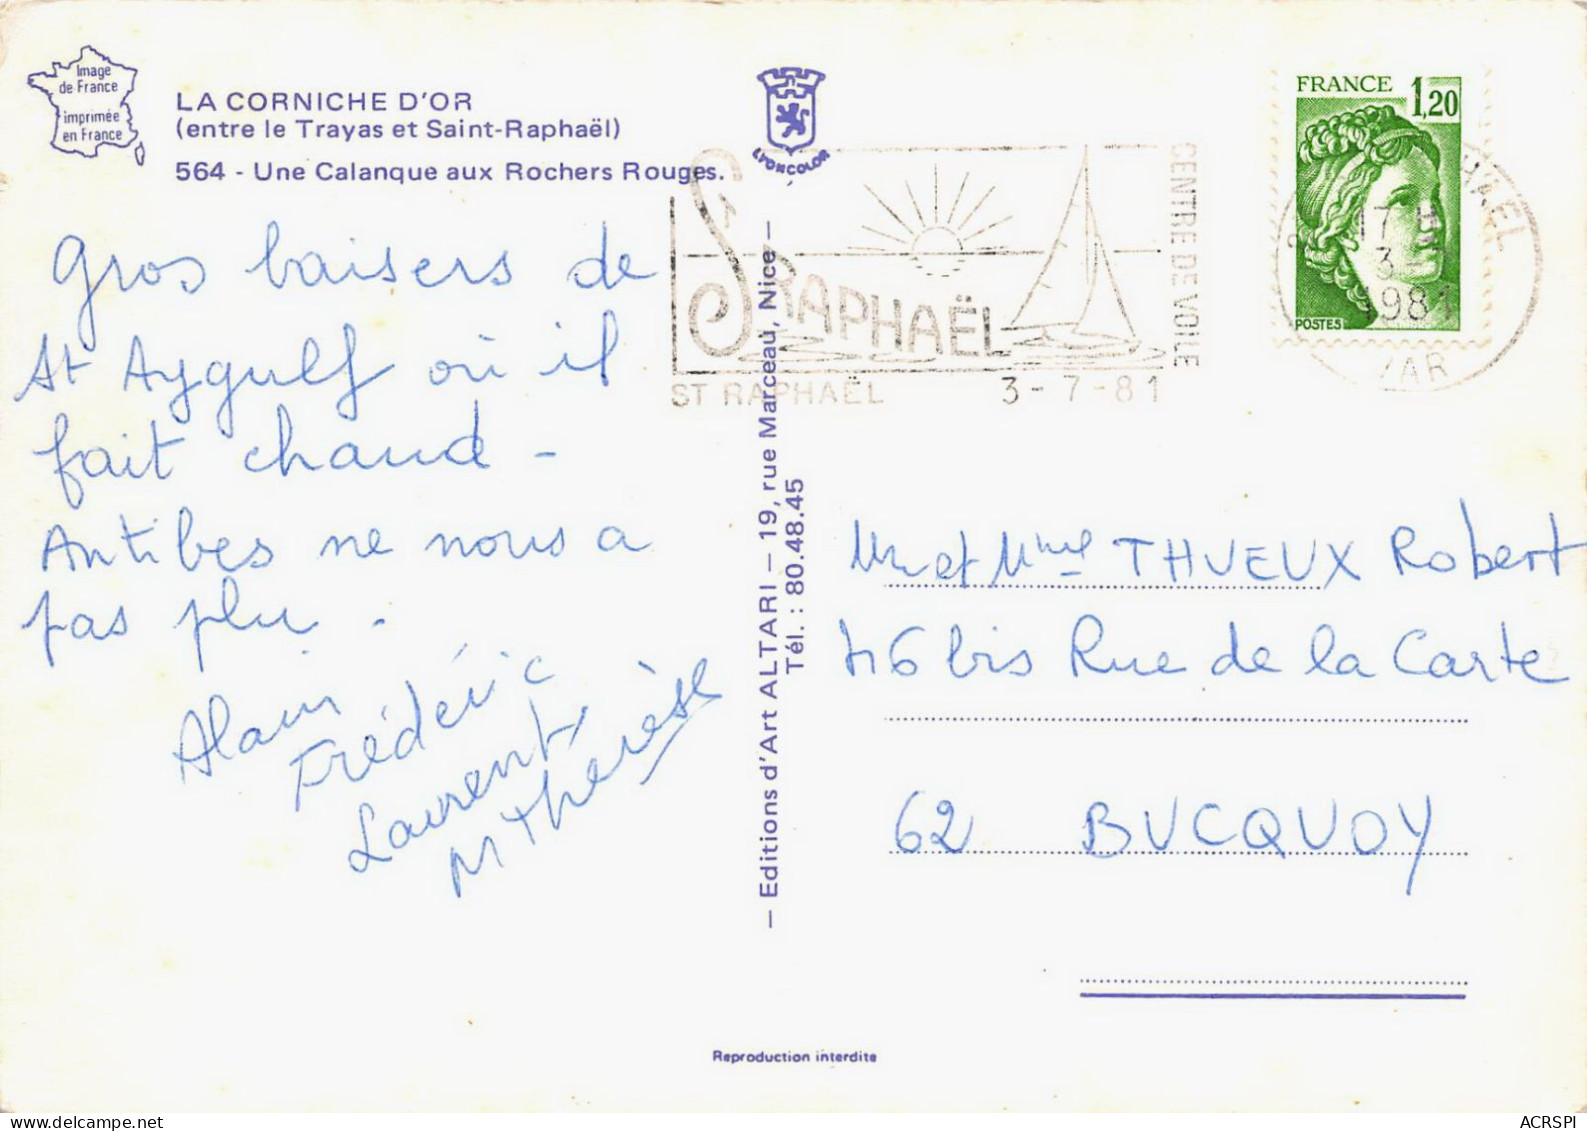 Image
de France
imprimée
en France
LA CORNICHE D'OR
(entre le Trayas et Saint-Raphaël)
564 - Une Calanque aux Rochers Rouges.
Gros baisers de
St Aygulf où il
fait chaud -
Antibes ne nous a
pas plu.
Alain
Frédéric
Laurent
M Thérèse
LYONCOLOR
— Editions d'Art ALTARI — 19, rue Marceau, Nice —
Tél. : 80.48.45
St RAPHAËL
CENTRE DE VOILE
ST RAPHAËL 3-7-81
FRANCE 1,20
POSTES
17 H
3 - 7
1981
VAR
Mr et Mme THUEUX Robert
46 bis Rue de la Carte
62 BUCQUOY
Reproduction interdite
ACRSPI